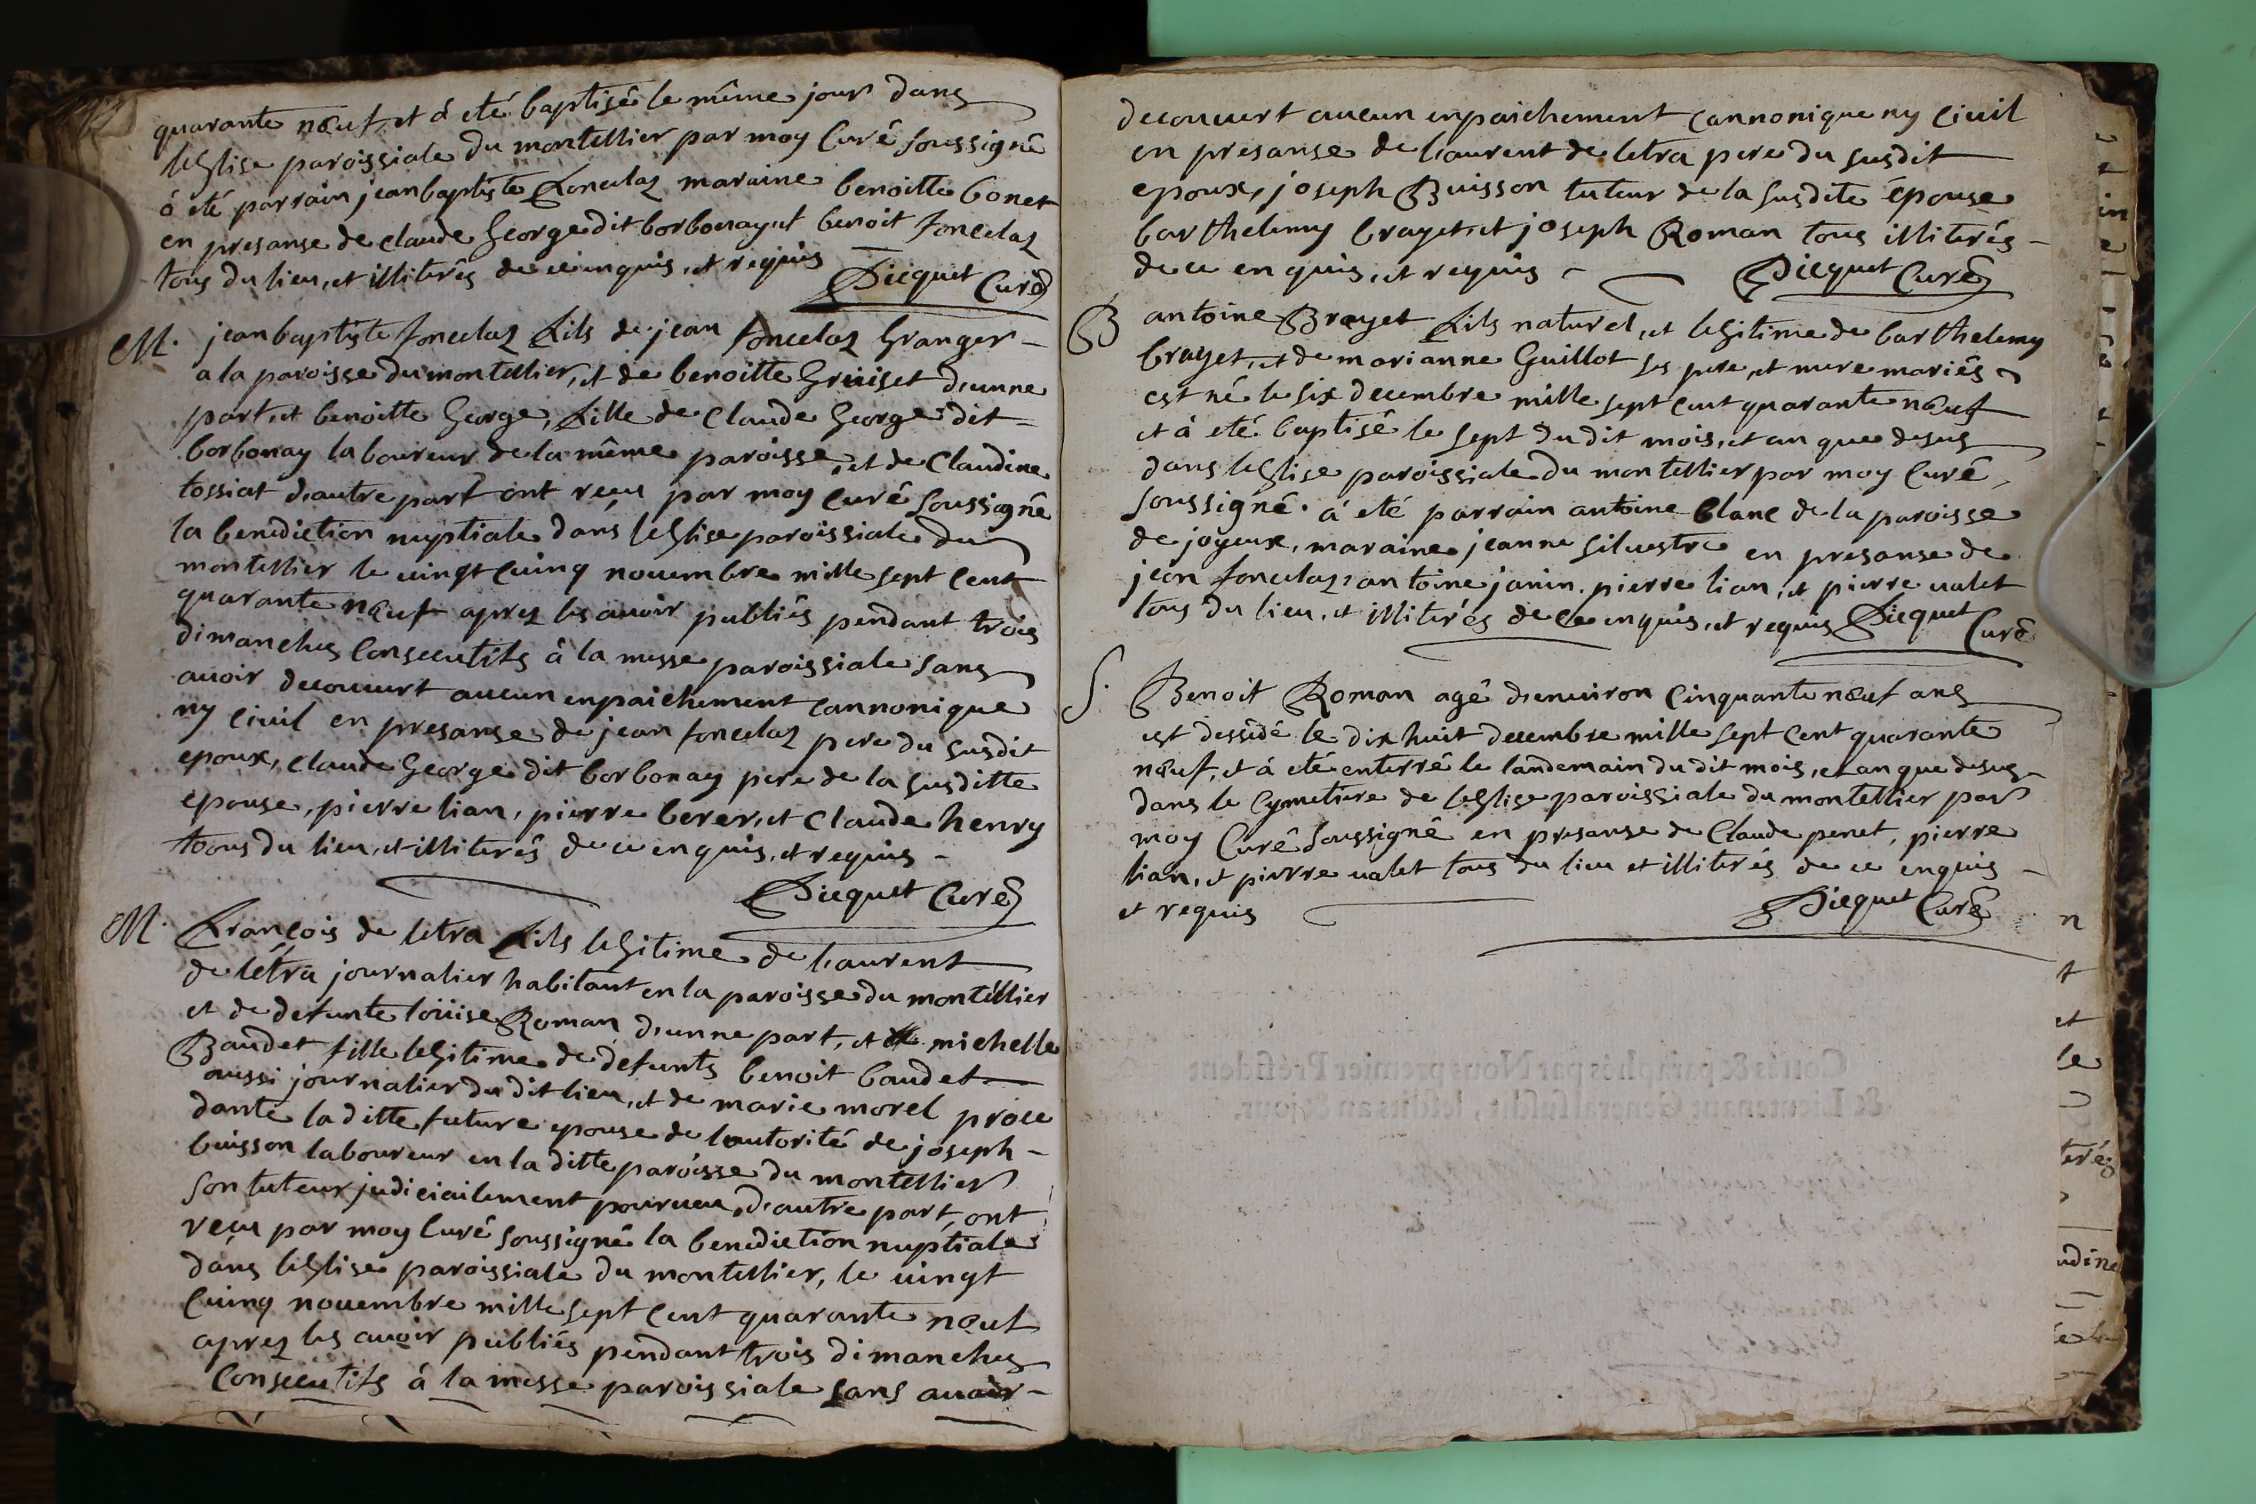 quarante nœuf, et á eté baptisé le même jour dans
leglise paroissiale du montellier par moy Curé soussigné
á eté parrain jean baptiste foncelaz maraine benoitte bonet
en presanse de claude George dit borbonay et benoit foncelaz
tous du lieu, et illiterés de ce enquis, et requis Picquet Curé
M. jean baptiste foncelaz fils de jean foncelaz Granger
a la paroisse du montellier, et de benoitte Gruiset d'unne
part, et benoitte George, fille de Claude George dit
borbonay laboureur de la même paroisse, et de Claudine
tossiat d'autre part ont reçu par moy curé soussigné
la benediction nuptiale dans leglise paroissiale du
montellier le uingt Cuinq nouembre mille sept Cent
quarante nœuf aprez les auoir publiés pendant trois
dimanches Consecutifs á la messe paroissiale sans
auoir decouuert aucun enpaichement cannonique
ny ciuil en presanse de jean foncelaz pere du susdit
epoux, claude George dit borbonay pere de la susditte
epouse, pierre lian, pierre berer, et Claude henry
tous du lieu, et illiterés de ce enquis, et requis
Picquet Curé
M. François de letra fils legitime de laurent
de létra journalier habitant en la paroisse du montellier
et de defunte loüise Roman d'unne part, et michelle
Baudet fille legitime de defunts benoit baudet
aussi journalier du dit lieu, et de marie morel proce
dante la ditte future epouse de l'autorité de joseph
buisson laboureur en la ditte paroisse du montellier
son tuteur judiciailement pourueu d'autre part, ont
reçu par moy Curé soussigné la benediction nuptiale
dans leglise paroissiale du montellier, le uingt
Cuinq nouembre mille sept Cent quarante nœuf
aprez les auoir publiés pendant trois dimanches
Consecutifs á la messe paroissiale sans auoir
decouuert aucun enpaichement cannonique ny Ciuil
en presanse de laurent de letra pere du susdit
epoux, joseph Buisson tuteur de la susdite épouse
barthelemy brayet, et joseph Roman tous illiterés
de ce enquis, et requis Picquet Curé
B antoine Brayet fils naturel, et legitime de barthelemy
brayet, et de marianne Guillot ses pere, et mere mariés
est né le six decembre mille sept cent quarante nœuf
et á eté baptisé le sept du dit mois, et an que desus
dans leglise paroissiale du montellier par moy Curé
soussigné. á eté parrain antoine blanc de la paroisse
de joyeux, maraine jeanne siluestre en presanse de
jean foncelaz, antoine janin, pierre lian, et pierre ualet
tous du lieu, et illiterés de ce enquis, et requis Picquet
Curé
S. Benoit Roman agé d'enuiron Cinquante nœuf ans
est dessidé le dix huit decembre mille sept Cent quarante
nœuf, et á eté enterré le landemain du dit mois, et an que desus
dans le Cymetiere de leglise paroissiale du montellier par
moy Curé soussigné en presanse de Claude penet, pierre
lian, et pierre ualet tous du lieu et illiterés de ce enquis
et requis Picquet Curé